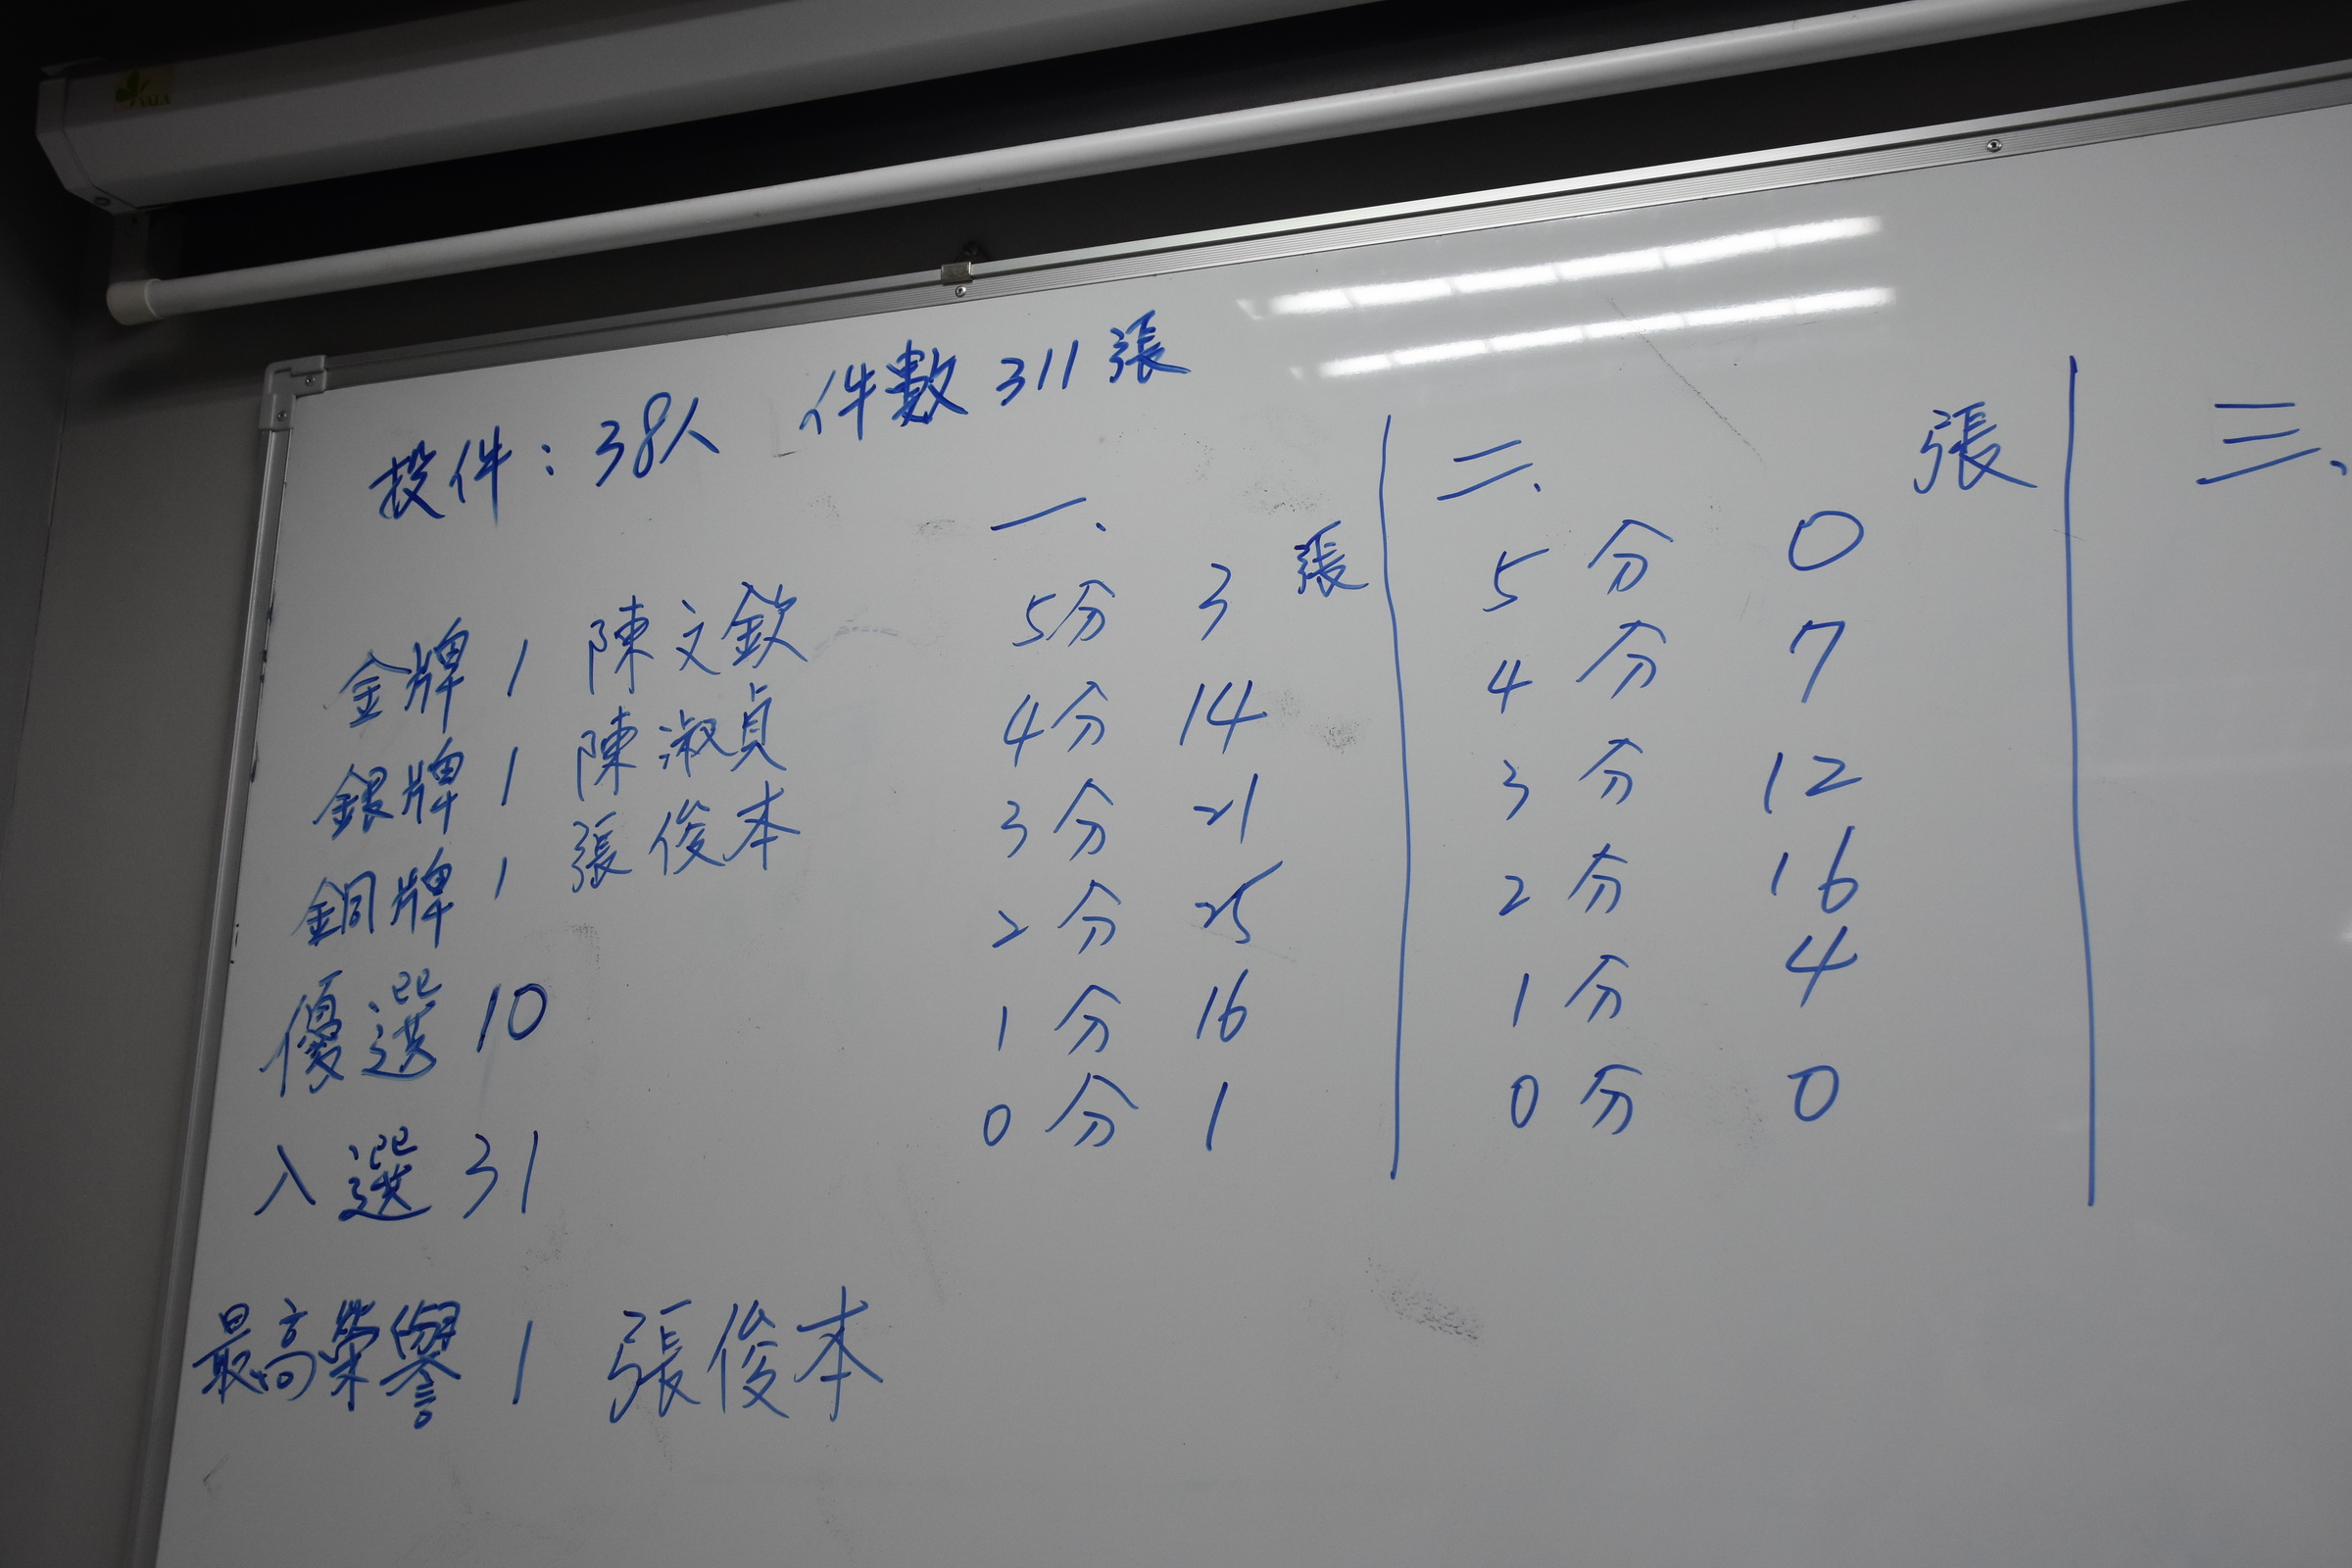 YALA
投件：38人 件數 311 張
金牌 1 陳文欽
銀牌 1 陳淑貞
銅牌 1 張俊本
優選 10
入選 31
最高榮譽 1 張俊本
一、
張
5分 3
4分 14
3分 21
2分 25
1分 16
0分 1
二、 張
5分 0
4分 7
3分 12
2分 16
1分 4
0分 0
三、